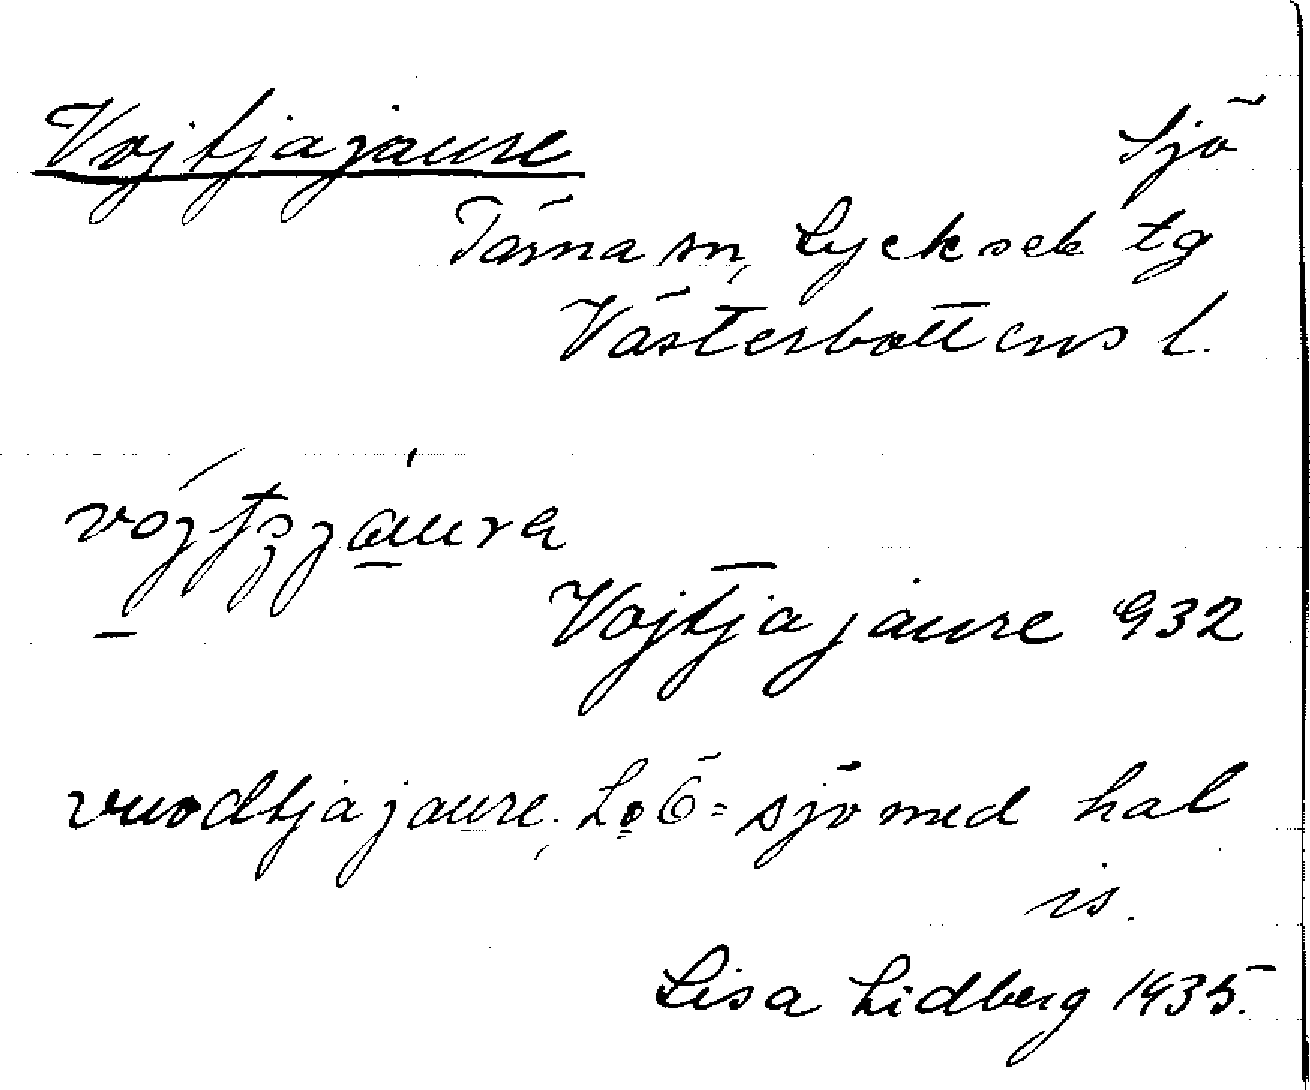 Vojtjajaure sjö
Tärna sn, Lycksele tg
Västerbottens l.
vójtʒjàura
Vojtjajaure 932
vuodtjajaure, L. Ö = sjö med hal
is.
Lisa Lidberg 1935.